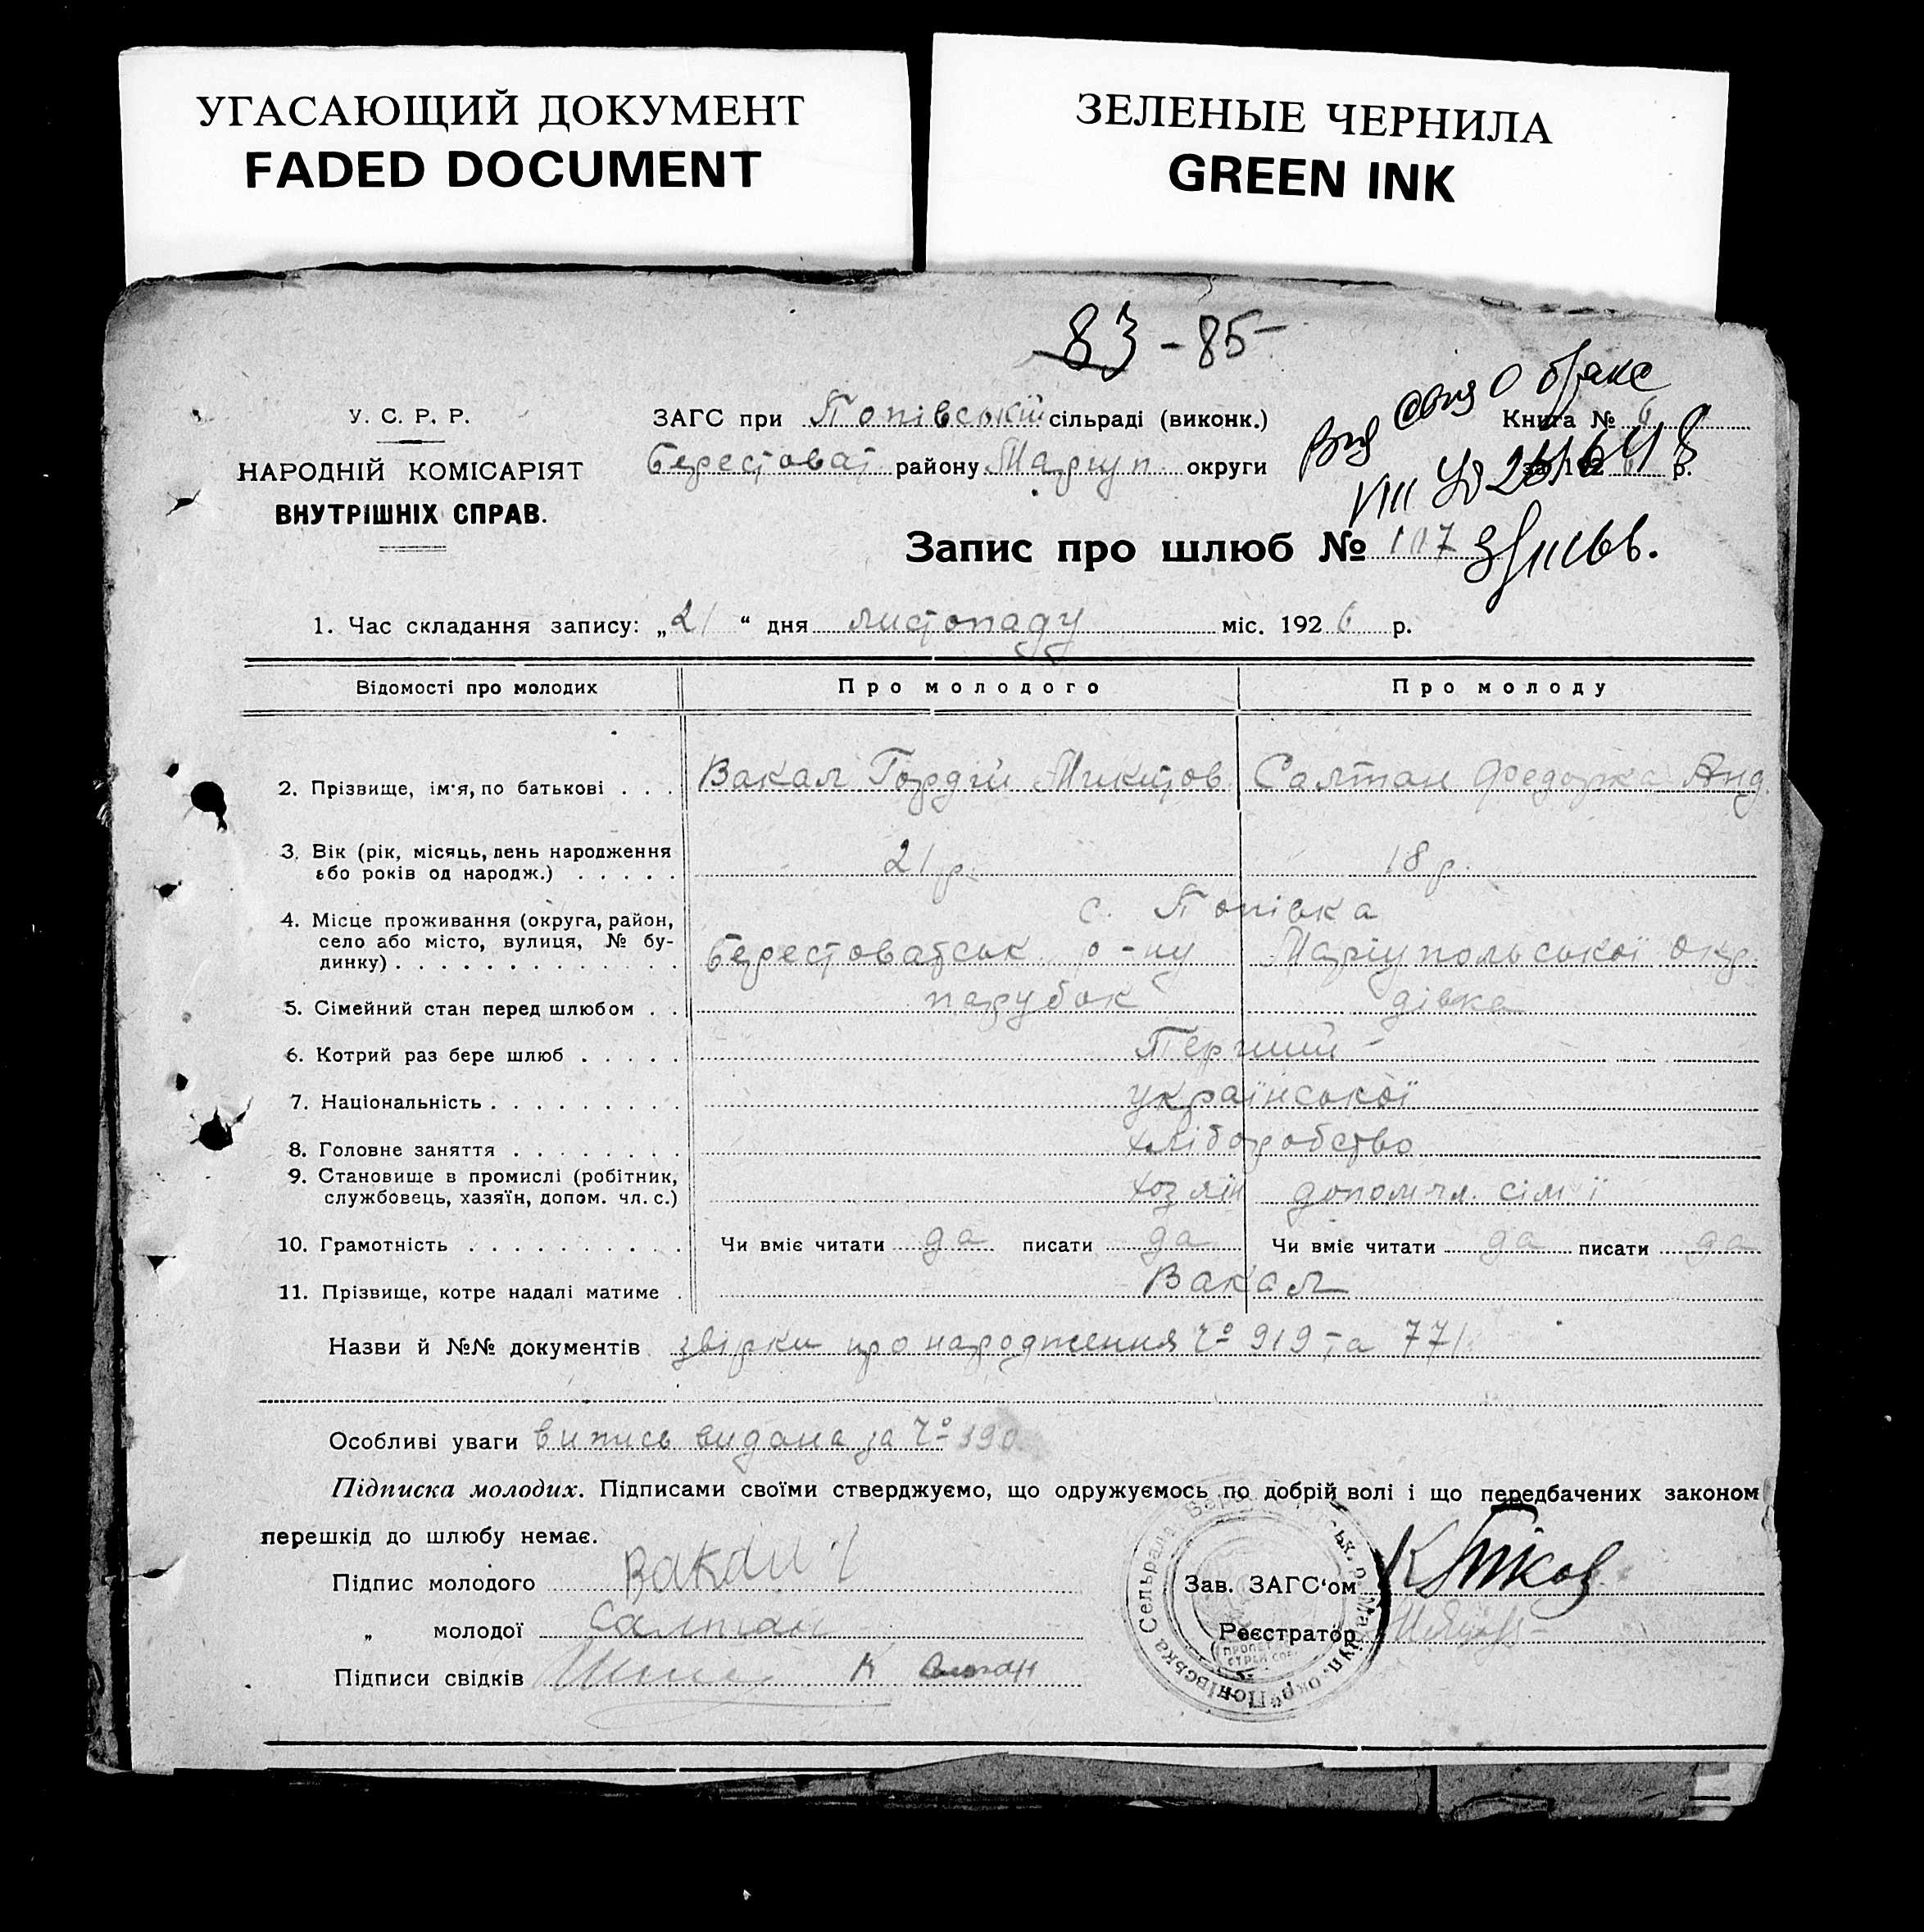 УГАСАЮЩИЙ ДОКУМЕНТ
FADED DOCUMENT
ЗЕЛЕНЫЕ ЧЕРНИЛА
GREEN INK
83 - 85
О браке
У. С. Р. Р.
НАРОДНІЙ КОМІСАРІЯТ
ВНУТРІШНІХ СПРАВ.
ЗАГС при Попівській сільраді (виконк.)
Книга № 6
Берестоват району Маріуп округи
р.
Запис про шлюб № 107
1. Час складання запису: „21“ дня листопаду міс. 1926 р.
Відомості про молодих Про молодого Про молоду
2. Прізвище, ім'я, по батькові . . . Вакал Гордій Микитов. Салтан Федорка Анд.
3. Вік (рік, місяць, день народження
або років од народж.) . . . . . 21 р. 18 р.
с. Попівка
4. Місце проживання (округа, район,
село або місто, вулиця, № бу-
динку) . . . . . . . . . . . . . Берестоватськ. р-ну Маріупольської окр.
5. Сімейний стан перед шлюбом . . парубок дівка
6. Котрий раз бере шлюб . . . . . Перший
7. Національність . . . . . . . . . української
8. Головне заняття . . . . . . . . хліборобство
9. Становище в промислі (робітник,
службовець, хазяїн, допом. чл. с.) хозяїн допом чл. сім'ї
10. Грамотність . . . . . . . . . . Чи вміє читати да писати да Чи вміє читати да писати да
11. Прізвище, котре надалі матиме . Вакал
Назви й №№ документів звірки про народження № 919 та 771
Особливі уваги випись видана за № 390
Підписка молодих. Підписами своїми стверджуємо, що одружуємось по добрій волі і що передбачених законом
перешкід до шлюбу немає.
Підпис молодого Вакал
Зав. ЗАГС'ом
„ молодої Салтан
Реєстратор
Підписи свідків
Попівська Сельрада